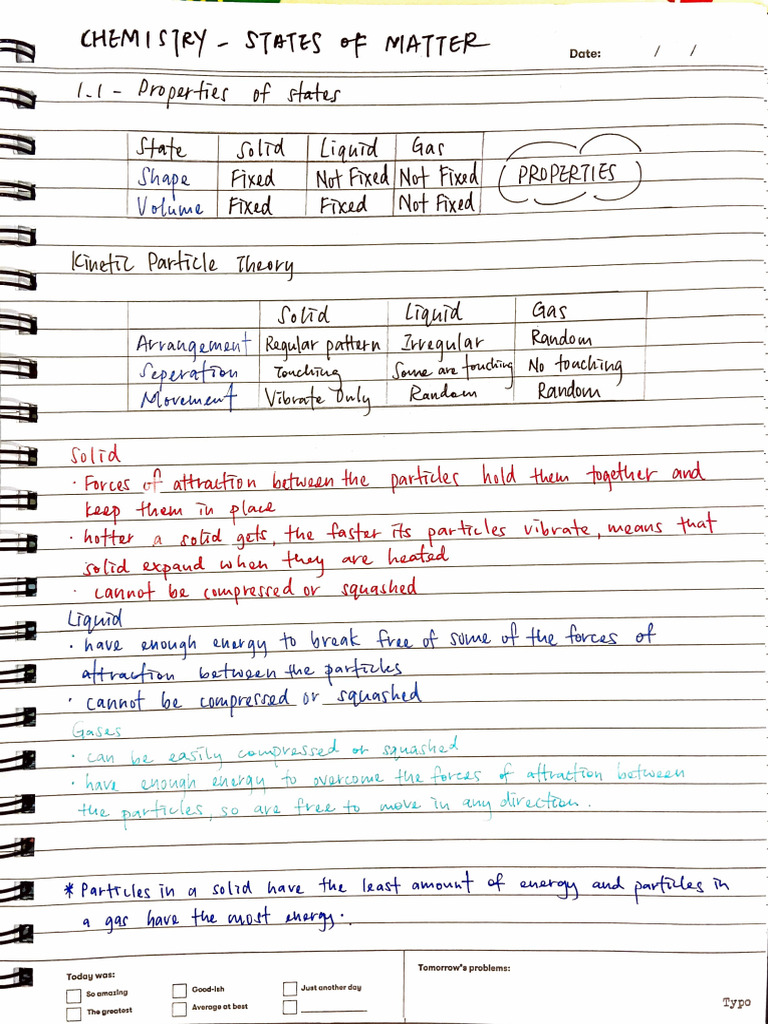 CHEMISTRY - STATES OF MATTER
Date: / /
1.1 - Properties of states
State Solid Liquid Gas
Shape Fixed Not Fixed Not Fixed
Volume Fixed Fixed Not Fixed
PROPERTIES
Kinetic Particle Theory
Solid Liquid Gas
Arrangement Regular pattern Irregular Random
Seperation Touching Some are touching No touching
Movement Vibrate Only Random Random
Solid
· Forces of attraction between the particles hold them together and
keep them in place
· hotter a solid gets, the faster its particles vibrate, means that
solid expand when they are heated
· cannot be compressed or squashed
Liquid
· have enough energy to break free of some of the forces of
attraction between the particles
· cannot be compressed or squashed
Gases
· can be easily compressed or squashed
· have enough energy to overcome the forces of attraction between
the particles, so are free to move in any direction.
* Particles in a solid have the least amount of energy and particles in
a gas have the most energy.
Today was:
So amazing Good-ish Just another day
The greatest Average at best
Tomorrow's problems:
Typo